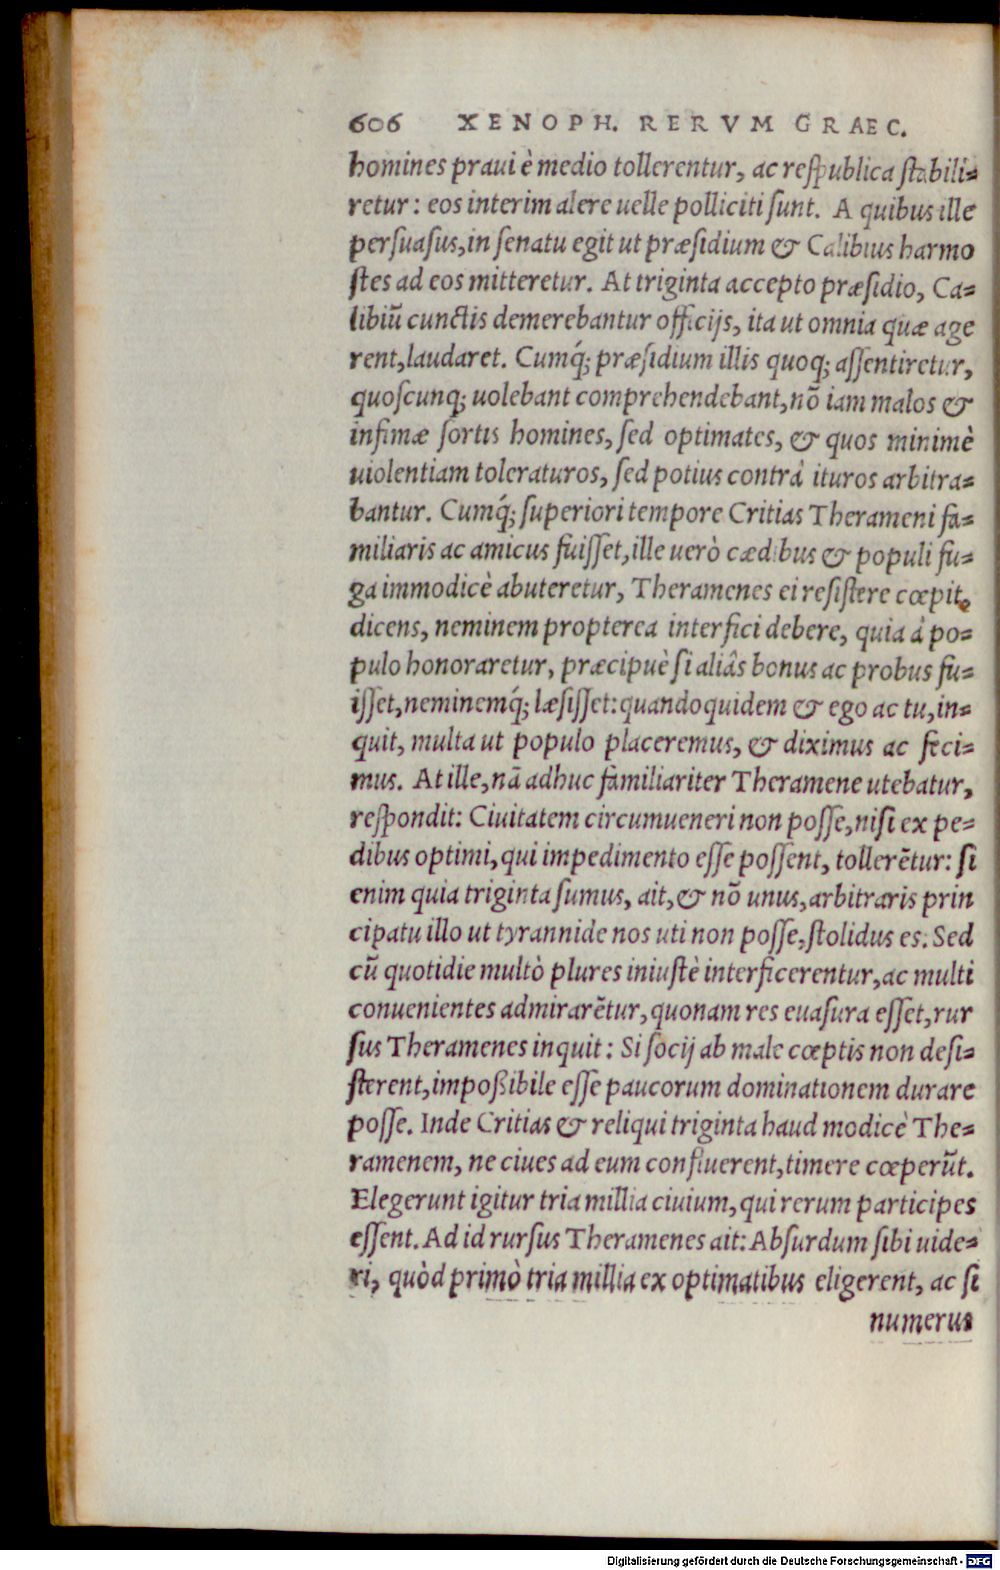 606 XENOPH. RERVM GRAEC.
homines praui è medio tollerentur, ac respublica stabili-
retur: eos interim alere uelle polliciti sunt. A quibus ille
persuasus, in senatu egit ut præsidium & Calibius harmo
stes ad eos mitteretur. At triginta accepto præsidio, Ca-
libiũ cunctis demerebantur officijs, ita ut omnia quæ age
rent, laudaret. Cumq́; præsidium illis quoq; assentiretur,
quoscunq; uolebant comprehendebant, nõ iam malos &
infimæ sortis homines, sed optimates, & quos minimè
uiolentiam toleraturos, sed potius contrà ituros arbitra-
bantur. Cumq́; superiori tempore Critias Therameni fa-
miliaris ac amicus fuisset, ille uerò cædibus & populi fu-
ga immodicè abuteretur, Theramenes ei resistere cœpit,
dicens, neminem propterea interfici debere, quia à po-
pulo honoraretur, præcipuè si aliâs bonus ac probus fu-
isset, neminemq́; læsisset: quandoquidem & ego ac tu, in-
quit, multa ut populo placeremus, & diximus ac feci-
mus. At ille, nã adhuc familiariter Theramene utebatur,
respondit: Ciuitatem circumueneri non posse, nisi ex pe-
dibus optimi, qui impedimento esse possent, tollerẽtur: si
enim quia triginta sumus, ait, & nõ unus, arbitraris prin
cipatu illo ut tyrannide nos uti non posse, stolidus es. Sed
cũ quotidie multò plures iniustè interficerentur, ac multi
conuenientes admirarẽtur, quonam res euasura esset, rur
sus Theramenes inquit: Si socij ab male cœptis non desi-
sterent, impoßibile esse paucorum dominationem durare
posse. Inde Critias & reliqui triginta haud modicè The-
ramenem, ne ciues ad eum confluerent, timere cœperũt.
Elegerunt igitur tria millia ciuium, qui rerum participes
essent. Ad id rursus Theramenes ait: Absurdum sibi uide-
ri, quòd primò tria millia ex optimatibus eligerent, ac si
numerus
Digitalisierung gefördert durch die Deutsche Forschungsgemeinschaft - DFG